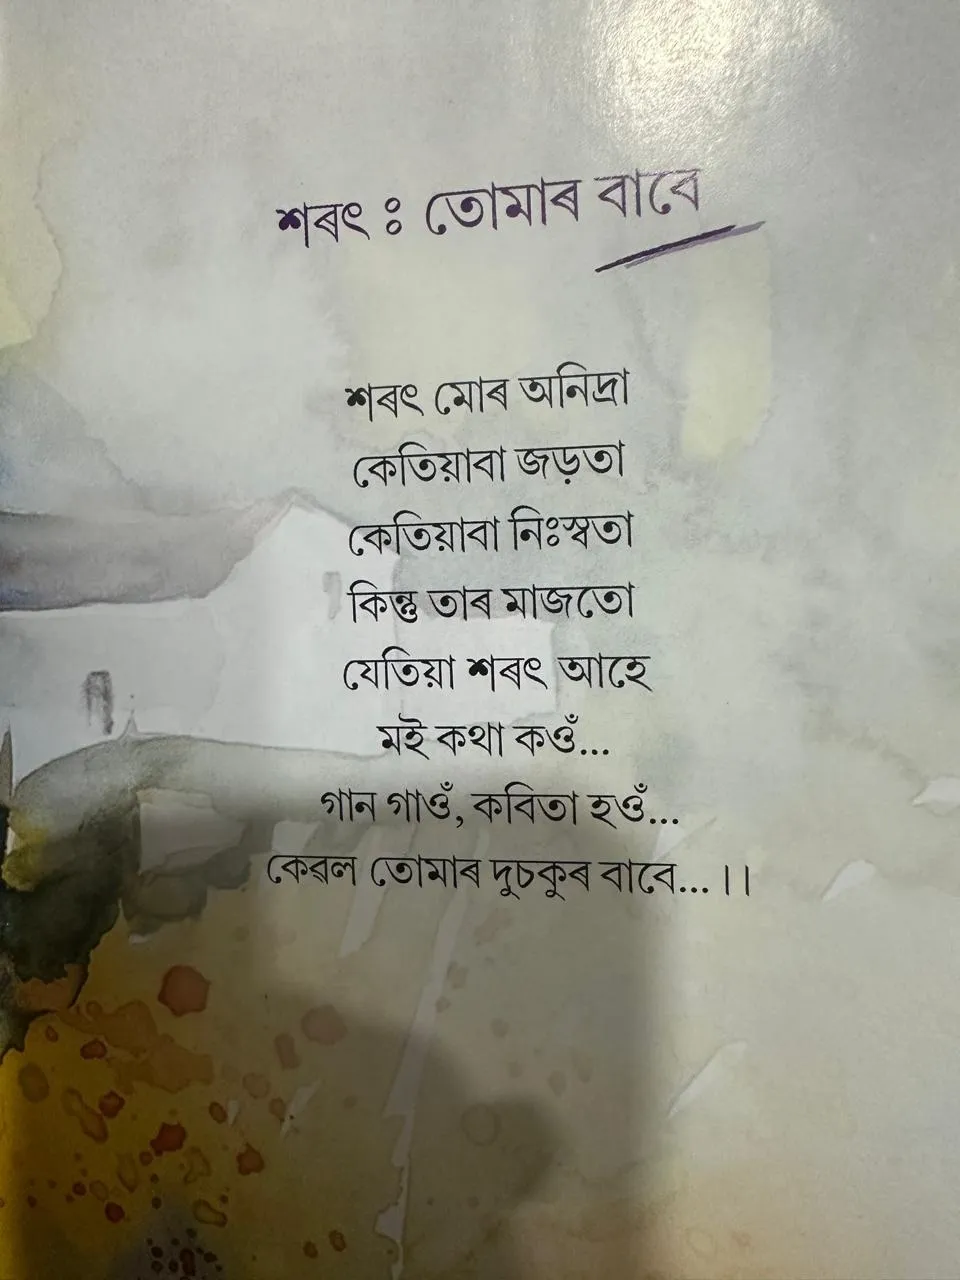 শৰৎ ঃ তোমাৰ বাবে
শৰৎ মোৰ অনিদ্ৰা
কেতিয়াবা জড়তা
কেতিয়াবা নিঃস্বতা
কিন্তু তাৰ মাজতো
যেতিয়া শৰৎ আহে
মই কথা কওঁ...
গান গাওঁ, কবিতা হওঁ...
কেৱল তোমাৰ দুচকুৰ বাবে... ।।